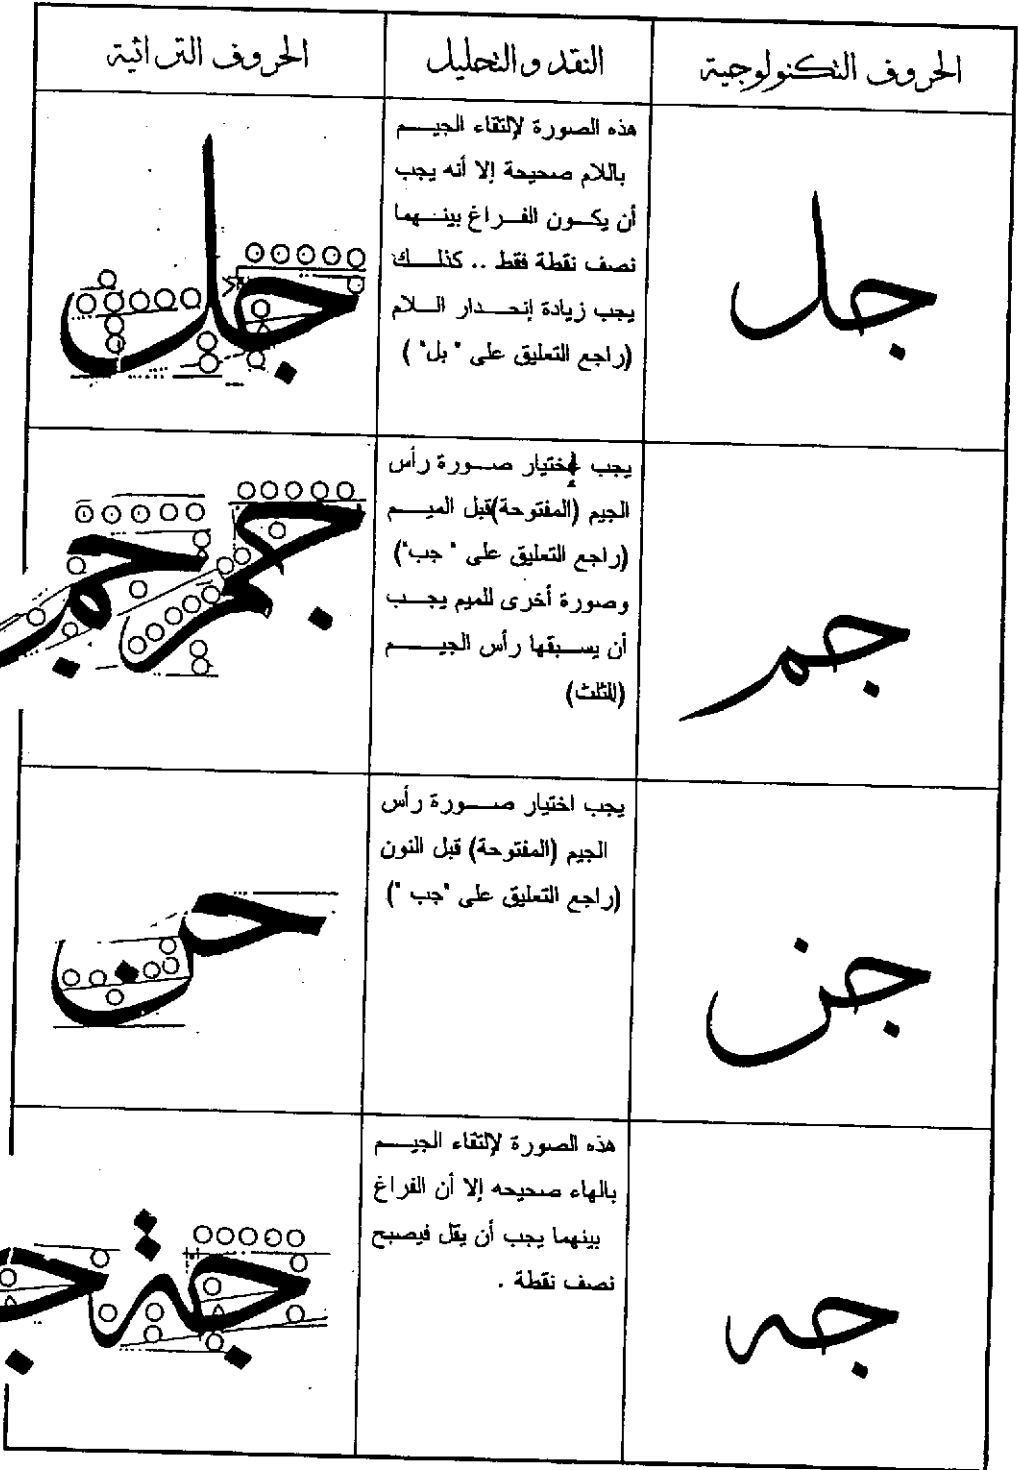 الحروف التكنولوجية
النقد والتحليل
الحروف التراثية
جل
هذه الصورة لإلتقاء الجيم
باللام صحيحة إلا أنه يجب
أن يكون الفراغ بينهما
نصف نقطة فقط .. كذلك
يجب زيادة إنحدار اللام
(راجع التعليق على " بل" )
جل
جم
يجب إختيار صورة رأس
الجيم (المفتوحة)قبل الميم
(راجع التعليق على " جب")
وصورة أخرى للميم يجب
أن يسبقها رأس الجيم
(للثلث)
جم
جن
يجب اختيار صورة رأس
الجيم (المفتوحة) قبل النون
(راجع التعليق على "جب ")
جه
هذه الصورة لإلتقاء الجيم
بالهاء صحيحه إلا أن الفراغ
بينهما يجب أن يقل فيصبح
نصف نقطة .
جة